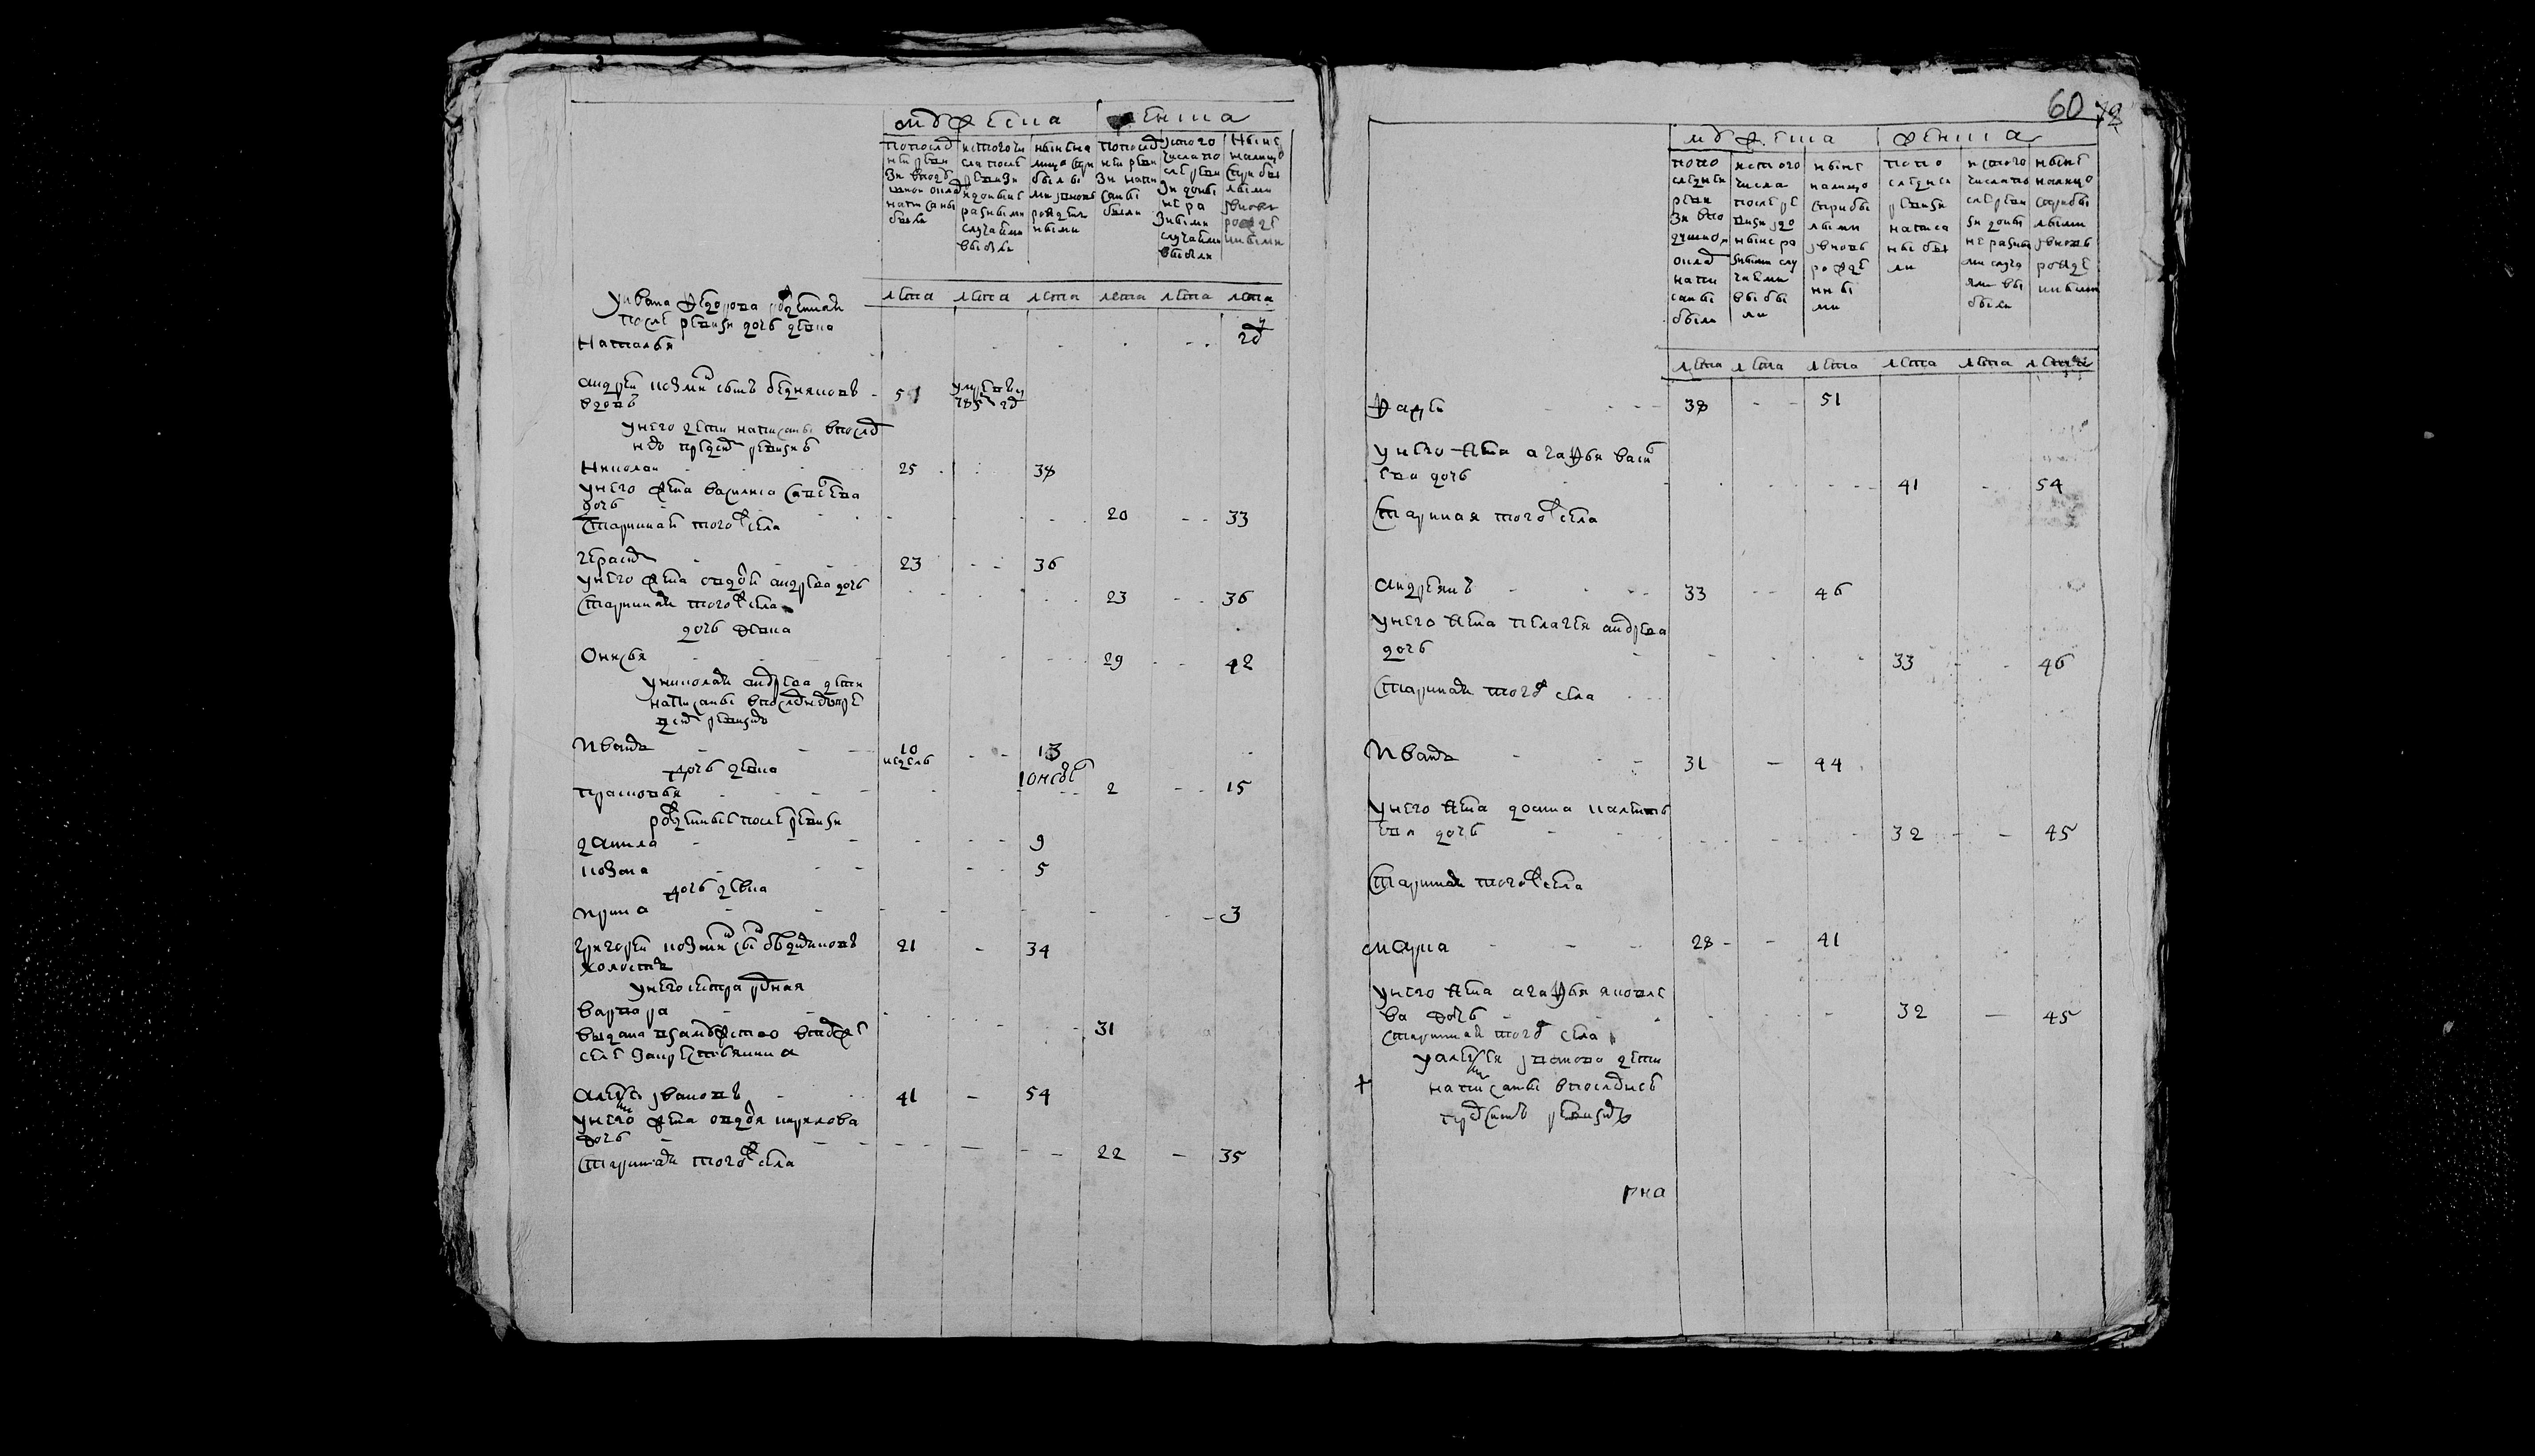 мужеска женска
попослѣд ней ревизіи вподушной оклад написаны были
ис того числа после ревизіи до ныне разными случаями выбыли
ныне на лицо сприбылыми и вновь рожденными
попослѣд ней ревизіи написаны были
ис того числа после ревизіи доныне разными случаями выбыли
Ныне налицо сприбылыми и вновь рожденными
лета лета лета лета лета лета
у ивана федорова рожденная
после ревизи дочь девка
Наталья
андрей козмин сынъ
вдовъ 51 умре въ 785 год
у него дети написаны впослед
ней пред ревизіи
Николай 25 38
у него жена василиса савельева
дочь 20 33
старинная того ж села
герасим 23 36
у него жена авдотья андреева дочь
старинная того ж села 23 36
дочь девка
Онисья 29 42
у николая андреева дети
написаны в последней пре
ревизіи
Иванъ 10 недель 13
дочь девка
прасковья 2 15
рожденные после ревизи
данила 9
козма 5
дочь девка
ирина 3
григорей козмин сын
холостъ 21 34
у него сестра родная
варвара 31
выдана в замужество в том же
селе за крестьянина
алексей ивановъ 41 54
у него жена авдотья кирилова
дочь 22 35
старинная того ж села
60
мужеска женска
попо следней ревизи вподушной оклад написаны были
ис того числа после ревизи и до ныне разными случаями выбыли
ныне налицо сприбылыми и вновь рожденными
попо следней ревизи написаны были
ис того числа после ревизи доныне разными случаями выбыли
ныне налицо сприбылыми и вновь рожденными
лета лета лета лета лета лета
Фадей 38 51
у него жена агафья васи
ева дочь 41 54
старинная того ж села
андреянъ 33 46
у него жена пелагея андреева
дочь 33 46
старинная того ж села
Иванъ 31 44
у него жена домна
ева дочь 32 45
старинная того ж села
марка 28 41
у него жена агафья яковле
ва дочь 32 45
старинная того ж села
у алексея иванова дети
написаны в последней
пред сим ревизіи